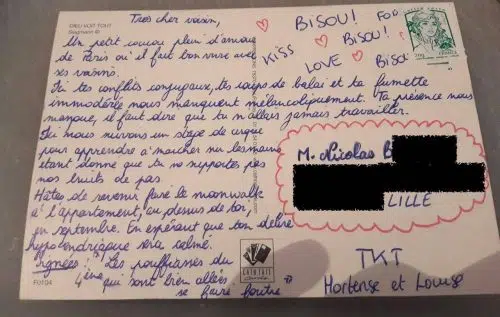 DIEU VOIT TOUT
Siegmann ©
Tres cher voisin,
Un petit coucou plein d'amour
de Paris où il fait bon vivre avec
ses voisins.
Ici tes conflits conjugaux, tes coups de balai et ta fumette
immodérée nous manquent mélancoliquement. Ta présence nous
manque, il faut dire que tu n'allais jamais travailler.
Ici nous suivons un stage de cirque
pour apprendre à marcher sur les mains
étant donné que tu ne supportes pas
nos bruits de pas.
Hâtes de revenir faire le moonwalk
à l'appartement, au dessus de toi,
en septembre. En espérant que ton délire
hypocondriaque sera calmé.
Signées : "Les pouffiasses du
4ème qui sont bien allées
se faire foutre"
F0104
CART'FAIT
BISOU!
BISOU!
KISS
LOVE
BISOU
M. Nicolas B
LILLE
TKT
Hortense et Louise